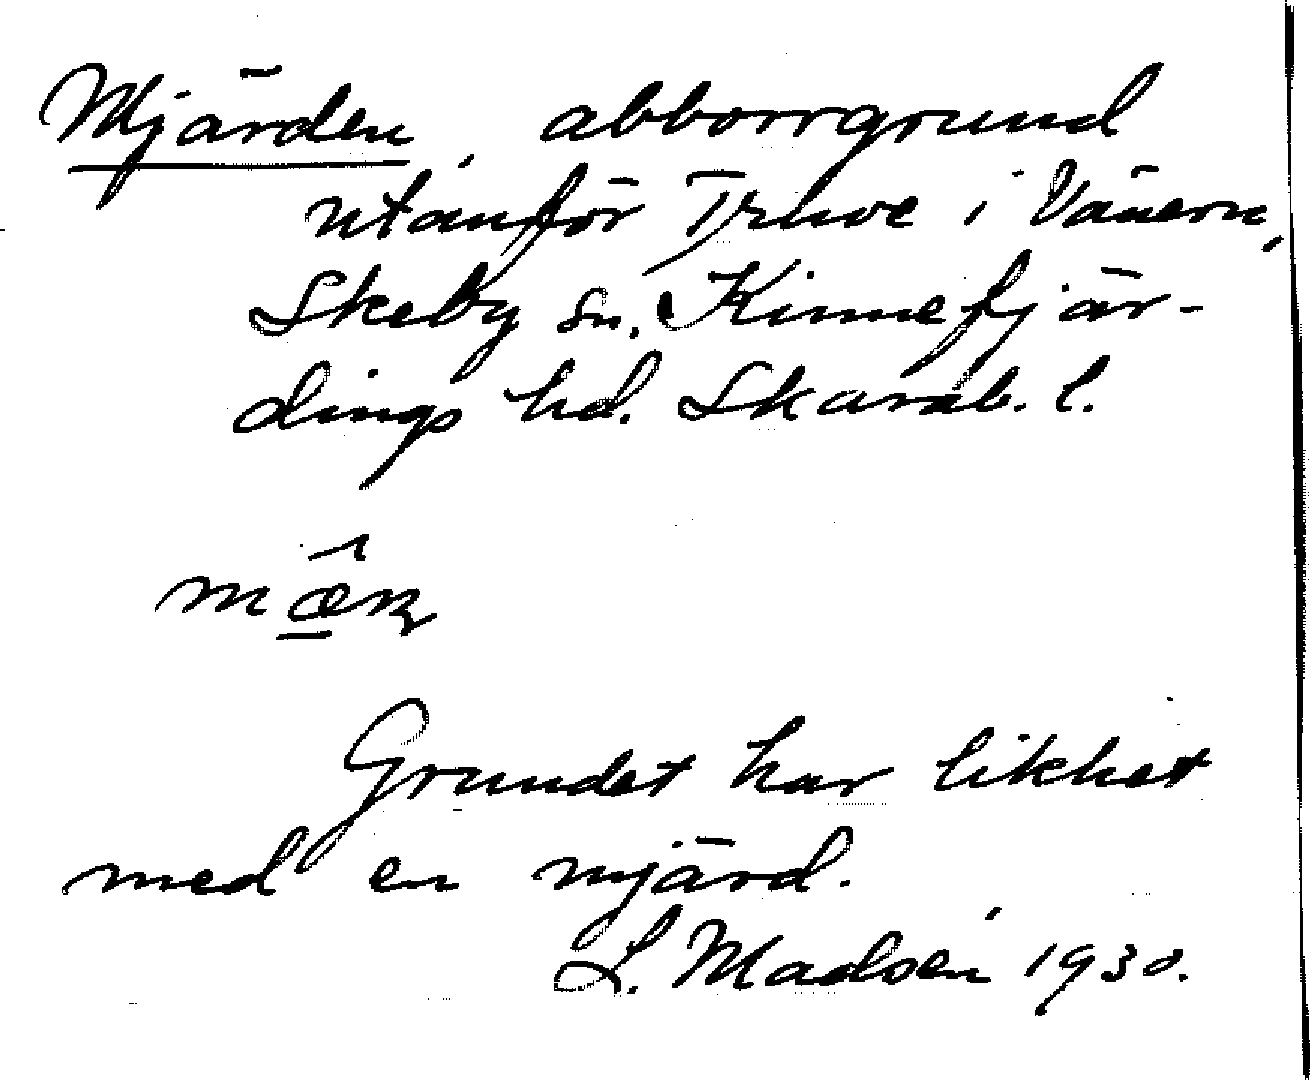 Mjärden, abborrgrund
utanför Truve i Vänern,
Skeby sn, Kinnefjär-
dings hd. Skarab. l.
Grundet har likhet
med en mjärd.
L. Madsén 1930.